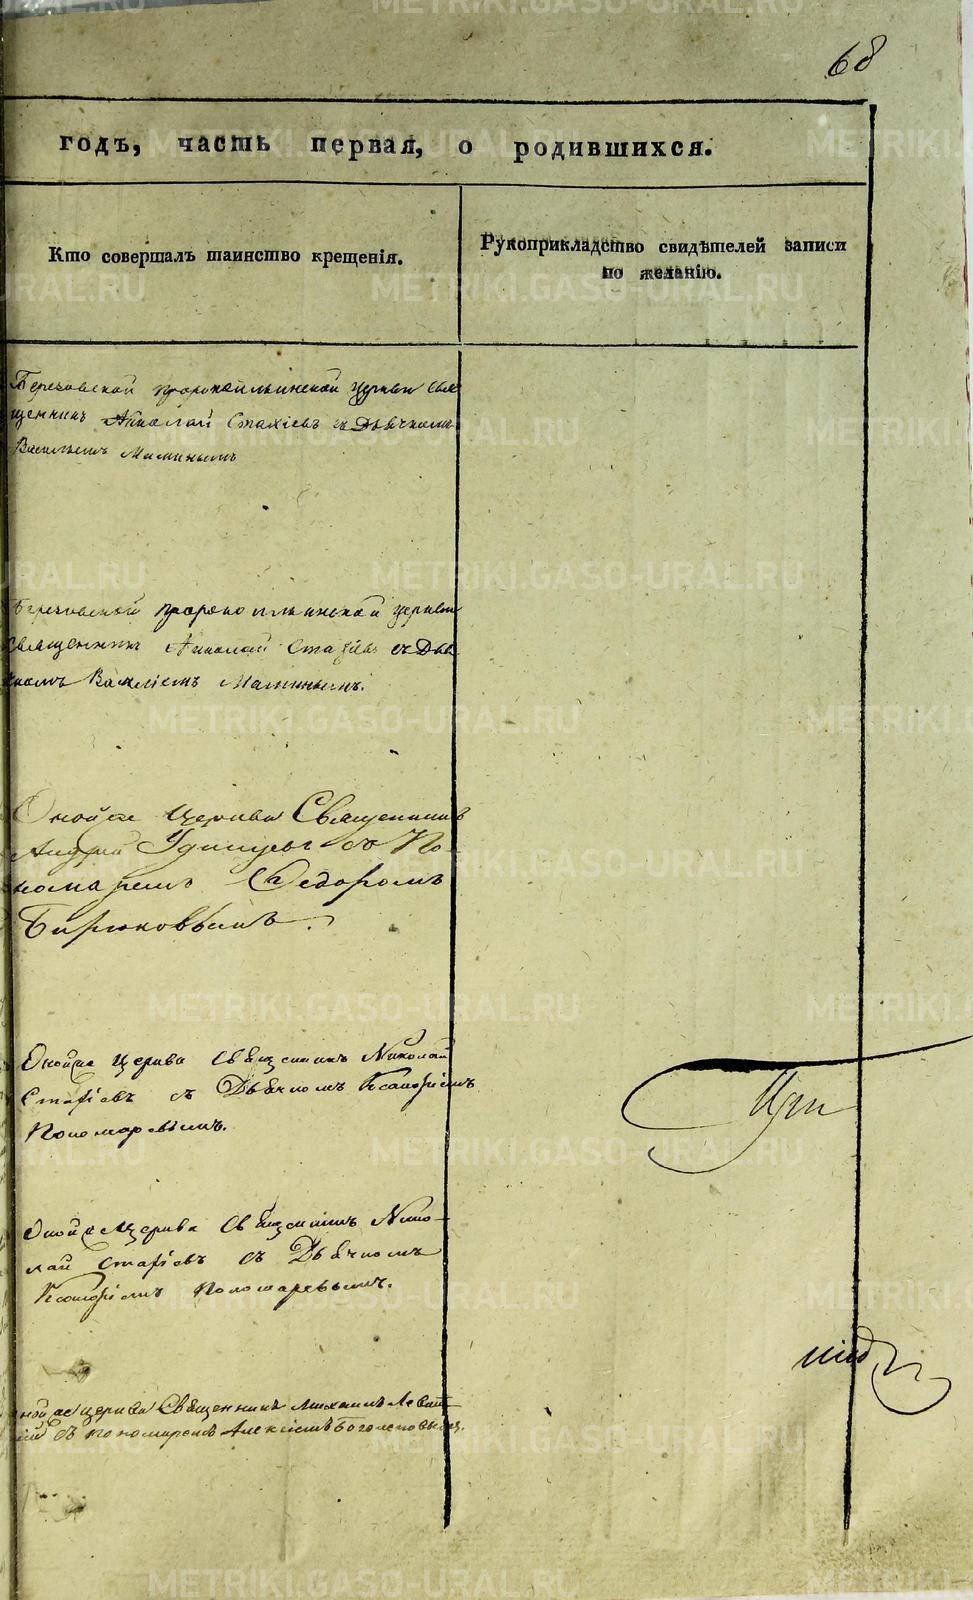 68
годъ, часть первая, о родившихся.
Кто совершалъ таинство крещенія.
Рукоприкладство свидѣтелей записи
по желанію.
церкви Свя
щенникъ Николай Стахіевъ съ Дьячкомъ
Васильемъ Маминымъ
церкви
Священникъ Николай Стахіевъ съ Дья
чкомъ Василіемъ Маминымъ.
Оной же Церкви Священникъ
Андрей Удинцевъ съ По-
номаремъ Федоромъ
Бирюковымъ.
Оной же Церкви Священникъ Николай
Стахіевъ съ Дьячкомъ
Пономаревымъ.
Оной же Церкви Священникъ Нико-
лай Стахіевъ съ Дьячкомъ
Пономаревымъ.
Оной же церкви Священникъ Михаилъ
съ пономаремъ Алексіемъ Боголеповымъ.
METRIKI.GASO-URAL.RU